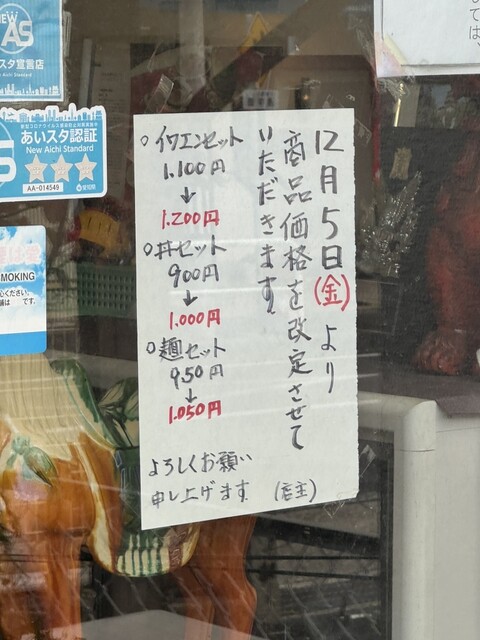 12月5日(金)より
商品価格を改定させて
いただきます。
○イワエンセット
1,100円
↓
1,200円
○丼セット
900円
↓
1,000円
○麺セット
950円
↓
1,050円
よろしくお願い
申し上げます (店主)
NEW
AS
スタ宣言店
New Aichi Standard
あいスタ認証
New Aichi Standard
AA-014549
愛知県
SMOKING